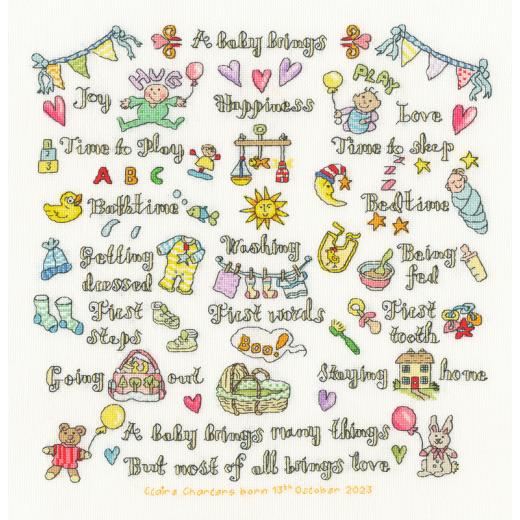 A baby brings
HUG
PLAY
Joy Happiness Love
Time to Play Time to sleep
A B C
Bathtime Bedtime
Getting dressed
Washing
Being fed
First steps
First words
First tooth
Boo!
Going out staying home
A baby brings many things
But most of all brings love
Claire Charters born 13th October 2023